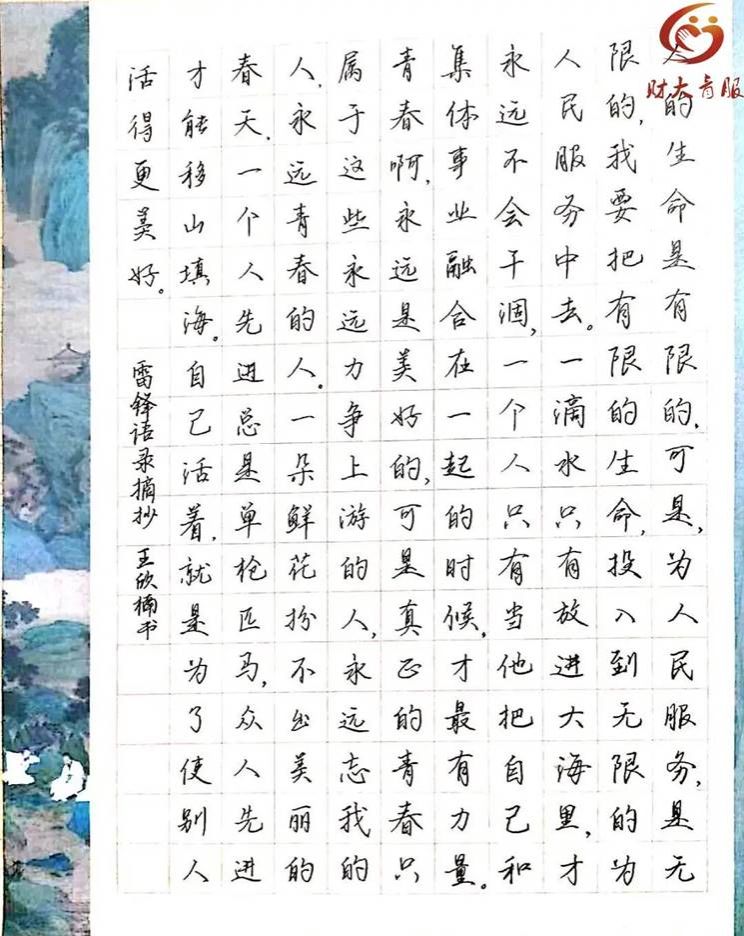 财大青服
人的生命是有限的,可是,为人民服务,是无
限的,我要把有限的生命,投入到无限的为
人民服务中去。一滴水只有放进大海里,才
永远不会干涸,一个人只有当他把自己和
集体事业融合在一起的时候,才最有力量。
青春啊,永远是美好的,可是真正的青春只
属于这些永远力争上游的人,永远忘我的
人,永远青春的人。一朵鲜花扮不出美丽的
春天,一个人先进总是单枪匹马,众人先进
才能移山填海。自己活着,就是为了使别人
活得更美好。
雷锋语录摘抄 王欣楠书